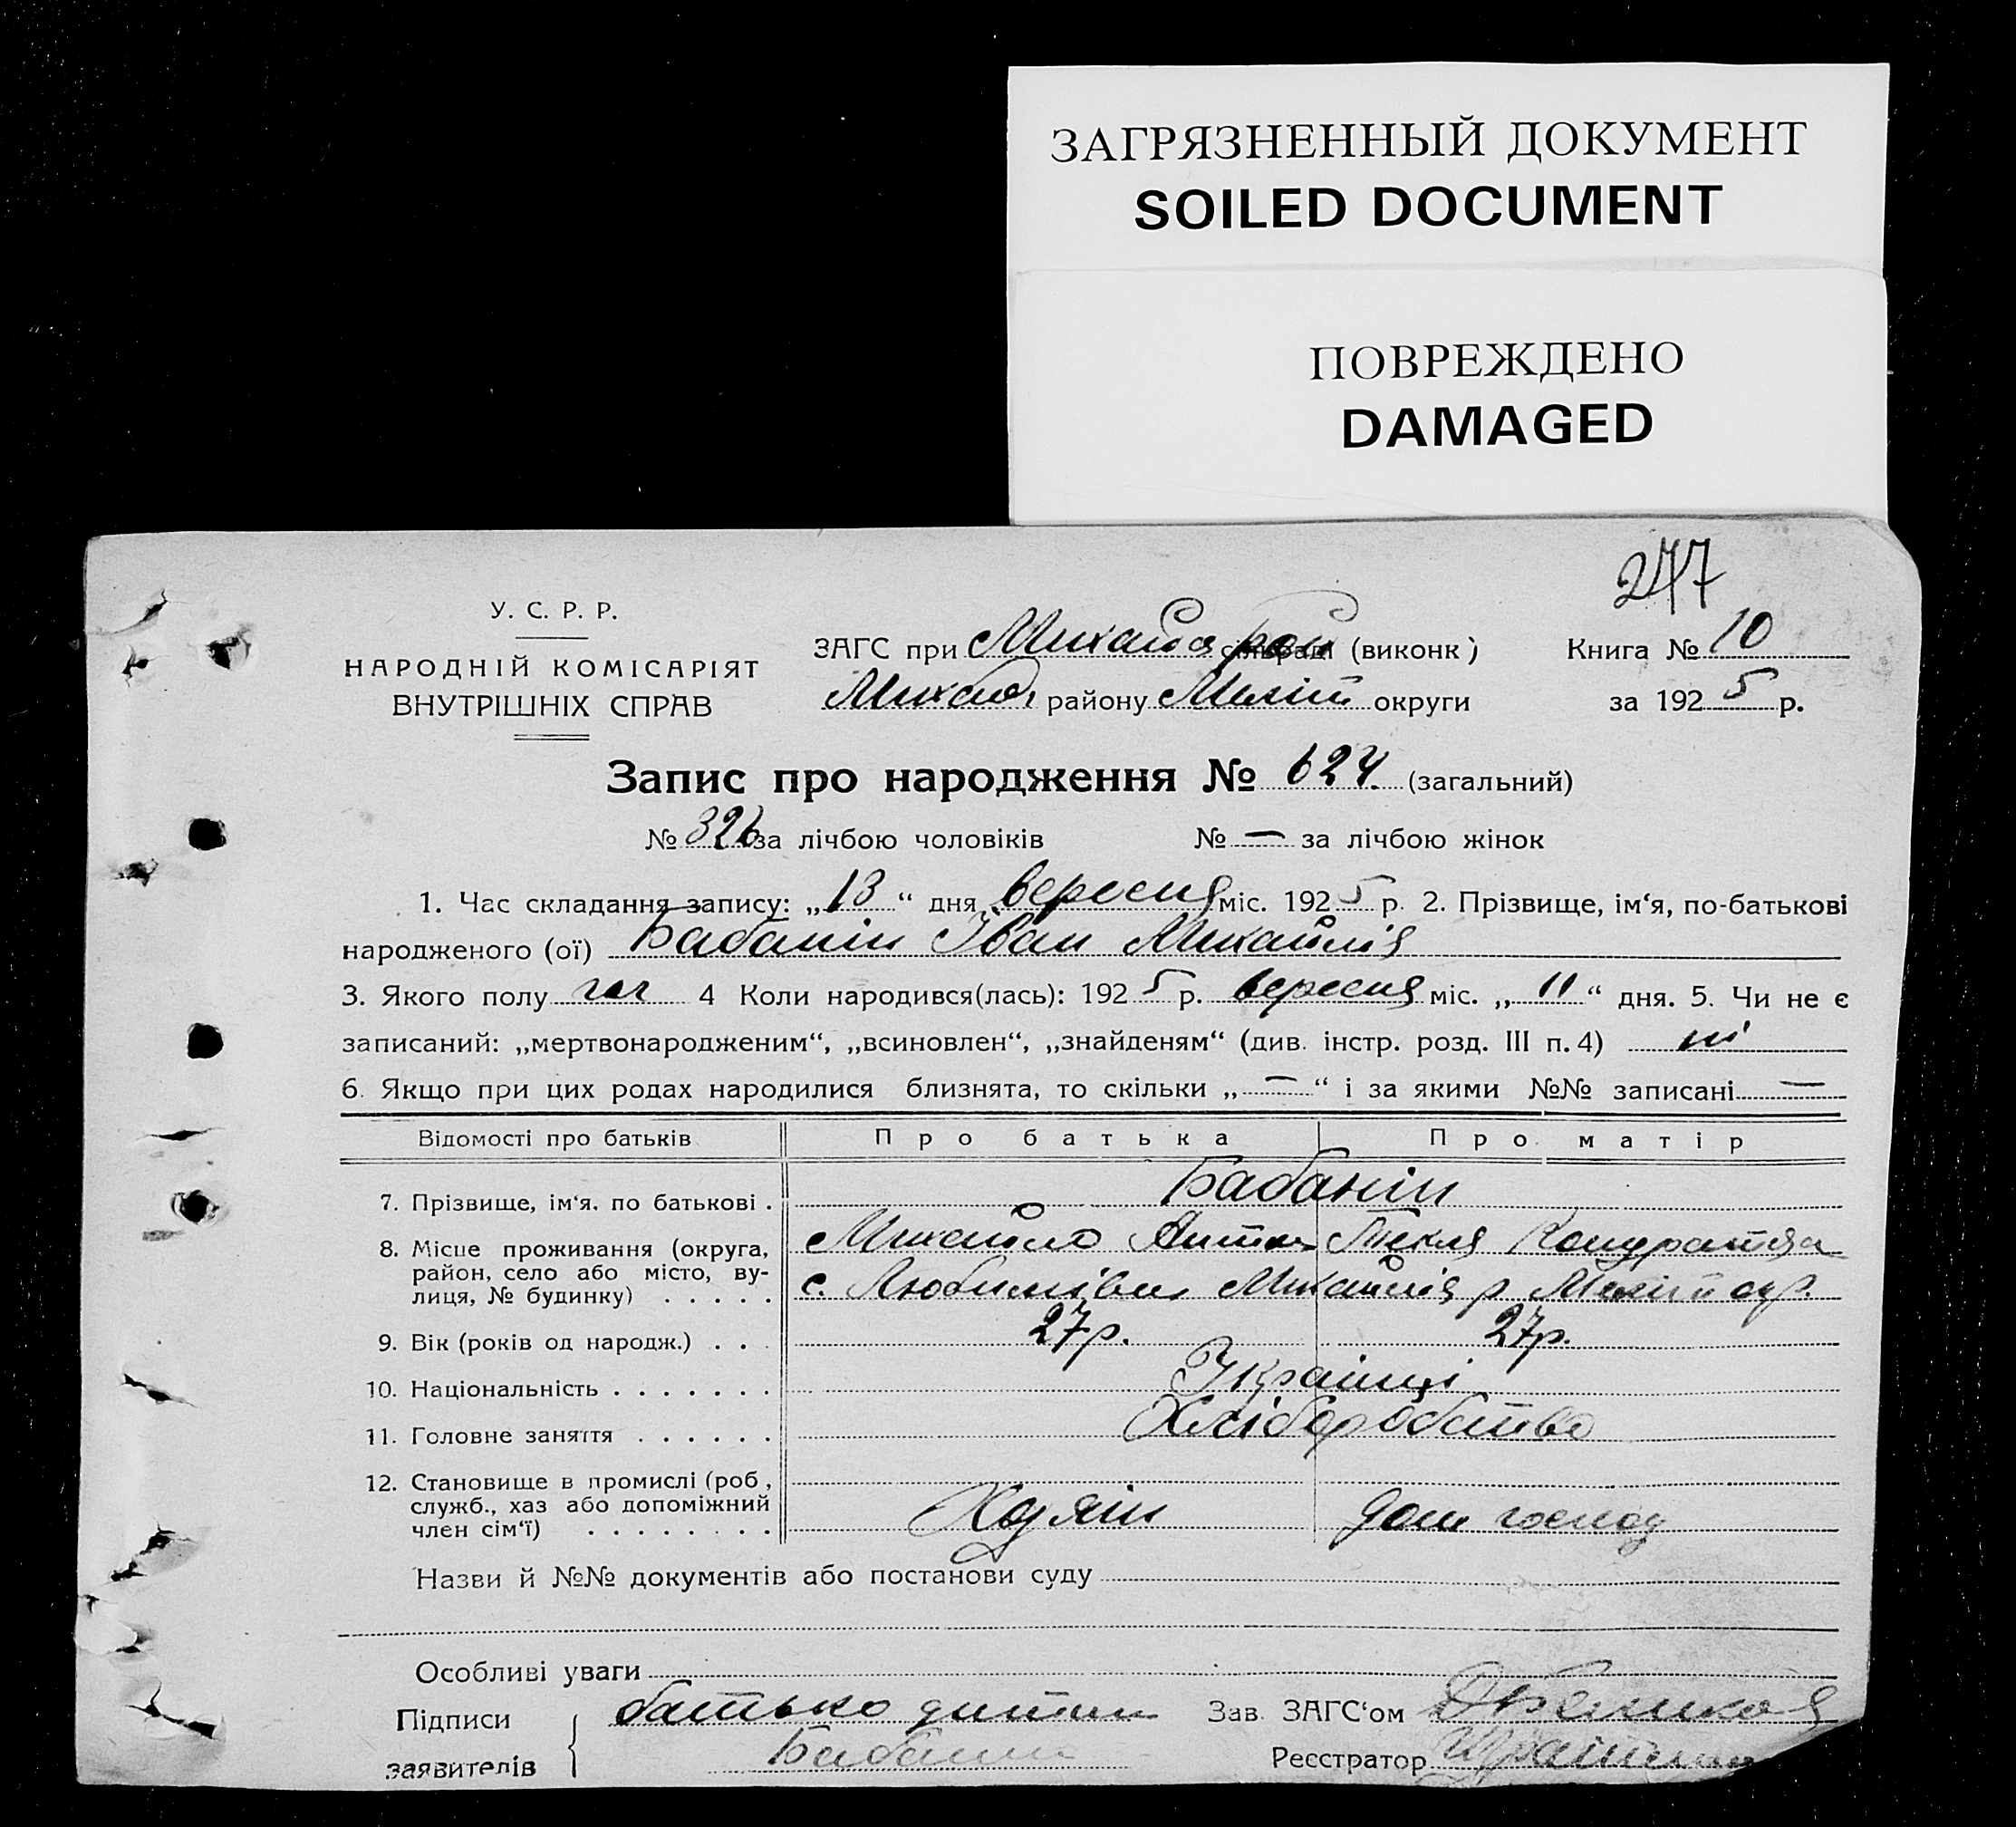 ЗАГРЯЗНЕННЫЙ ДОКУМЕНТ
SOILED DOCUMENT
ПОВРЕЖДЕНО
DAMAGED
247
У. С. Р. Р.
НАРОДНІЙ КОМІСАРІЯТ
ВНУТРІШНІХ СПРАВ
ЗАГС при (виконк)
району Меліт округи
Книга № 10
за 1925 р.
Запис про народження № 624. (загальний)
№ 326 за лічбою чоловіків № — за лічбою жінок
1. Час складання запису: „13“ дня вересня міс. 1925 р. 2. Прізвище, ім‘я, по-батькові
народженого (ої) Бабанін Іван Михайлів
3. Якого полу чол 4 Коли народився(лась): 1925 р. вересня міс. „11“ дня. 5. Чи не є
записаний: „мертвонародженим“, „всиновлен“, „знайденям“ (див. інстр. розд. III п. 4) ні
6. Якщо при цих родах народилися близнята, то скільки „—“ і за якими №№ записані —
Відомості про батьків Про батька Про матір
7. Прізвище, ім‘я, по батькові . Бабанін
Михайло Антон Текля
8. Місце проживання (округа, район, село або місто, вулиця, № будинку) . . . . . с. Любимівка Михайлів р Меліт окр.
9. Вік (років од народж.) . . . 27 р. 27 р.
10. Національність . . . . . . . Українці
11. Головне заняття . . . . . . Хліборобство
12. Становище в промислі (роб,
служб., хаз або допоміжний
член сім‘ї) . . . . . . . . Хазяїн Дом господ
Назви й №№ документів або постанови суду
Особливі уваги
Підписи заявителів батько дитини
Бабанин
Зав. ЗАГС‘ом
Реєстратор